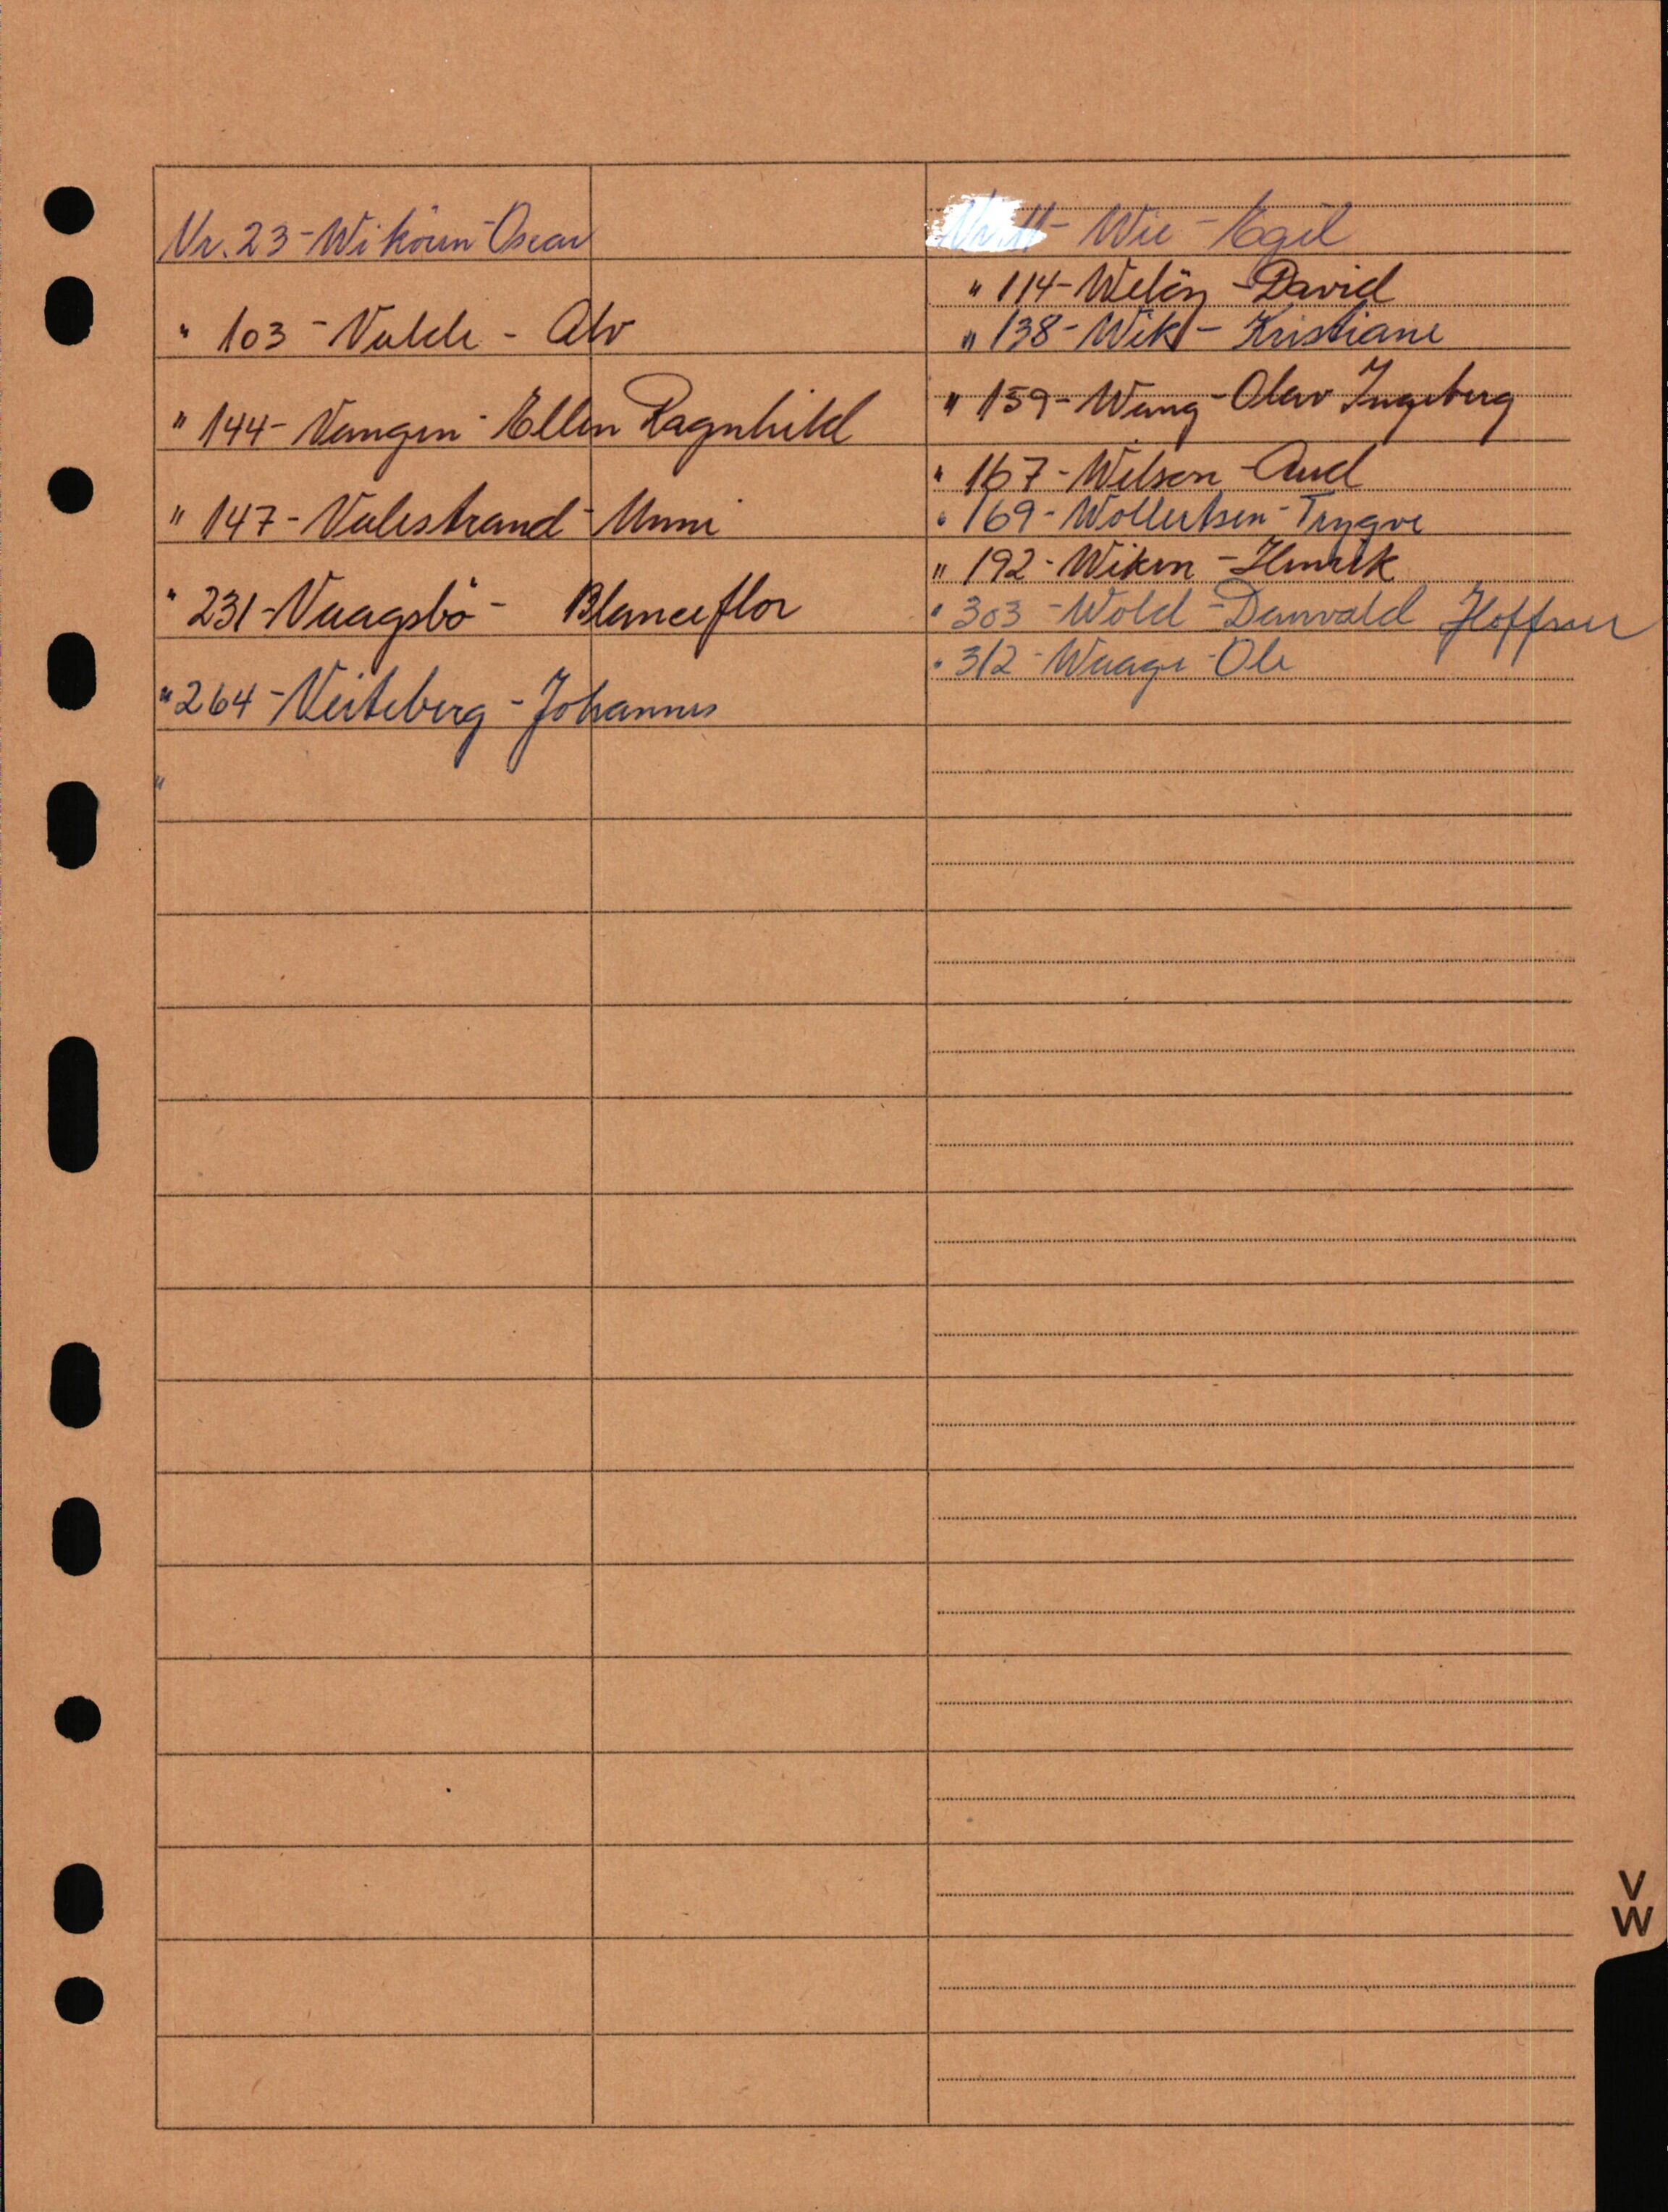 Nr. 23 - Wikören - Oscar
" 103 - Valde - Alv
" 144 - Vangen - Ellen Ragnhild
" 147 - Valestrand - Unni
" 231 - Vaagsbö - Blanceflor
" 264 - Veiteberg - Johannes
"
Wie - Egil
" 114 - Welön - David
" 138 - Wik - Kristiane
" 159 - Wang - Olav Ingeberg
" 167 - Wilson - Aud
" 169 - Wollertsen - Trygve
" 192 - Wiken - Henrik
" 303 - Wold - Danvald Hoffner
" 312 - Waage - Ole
V
W